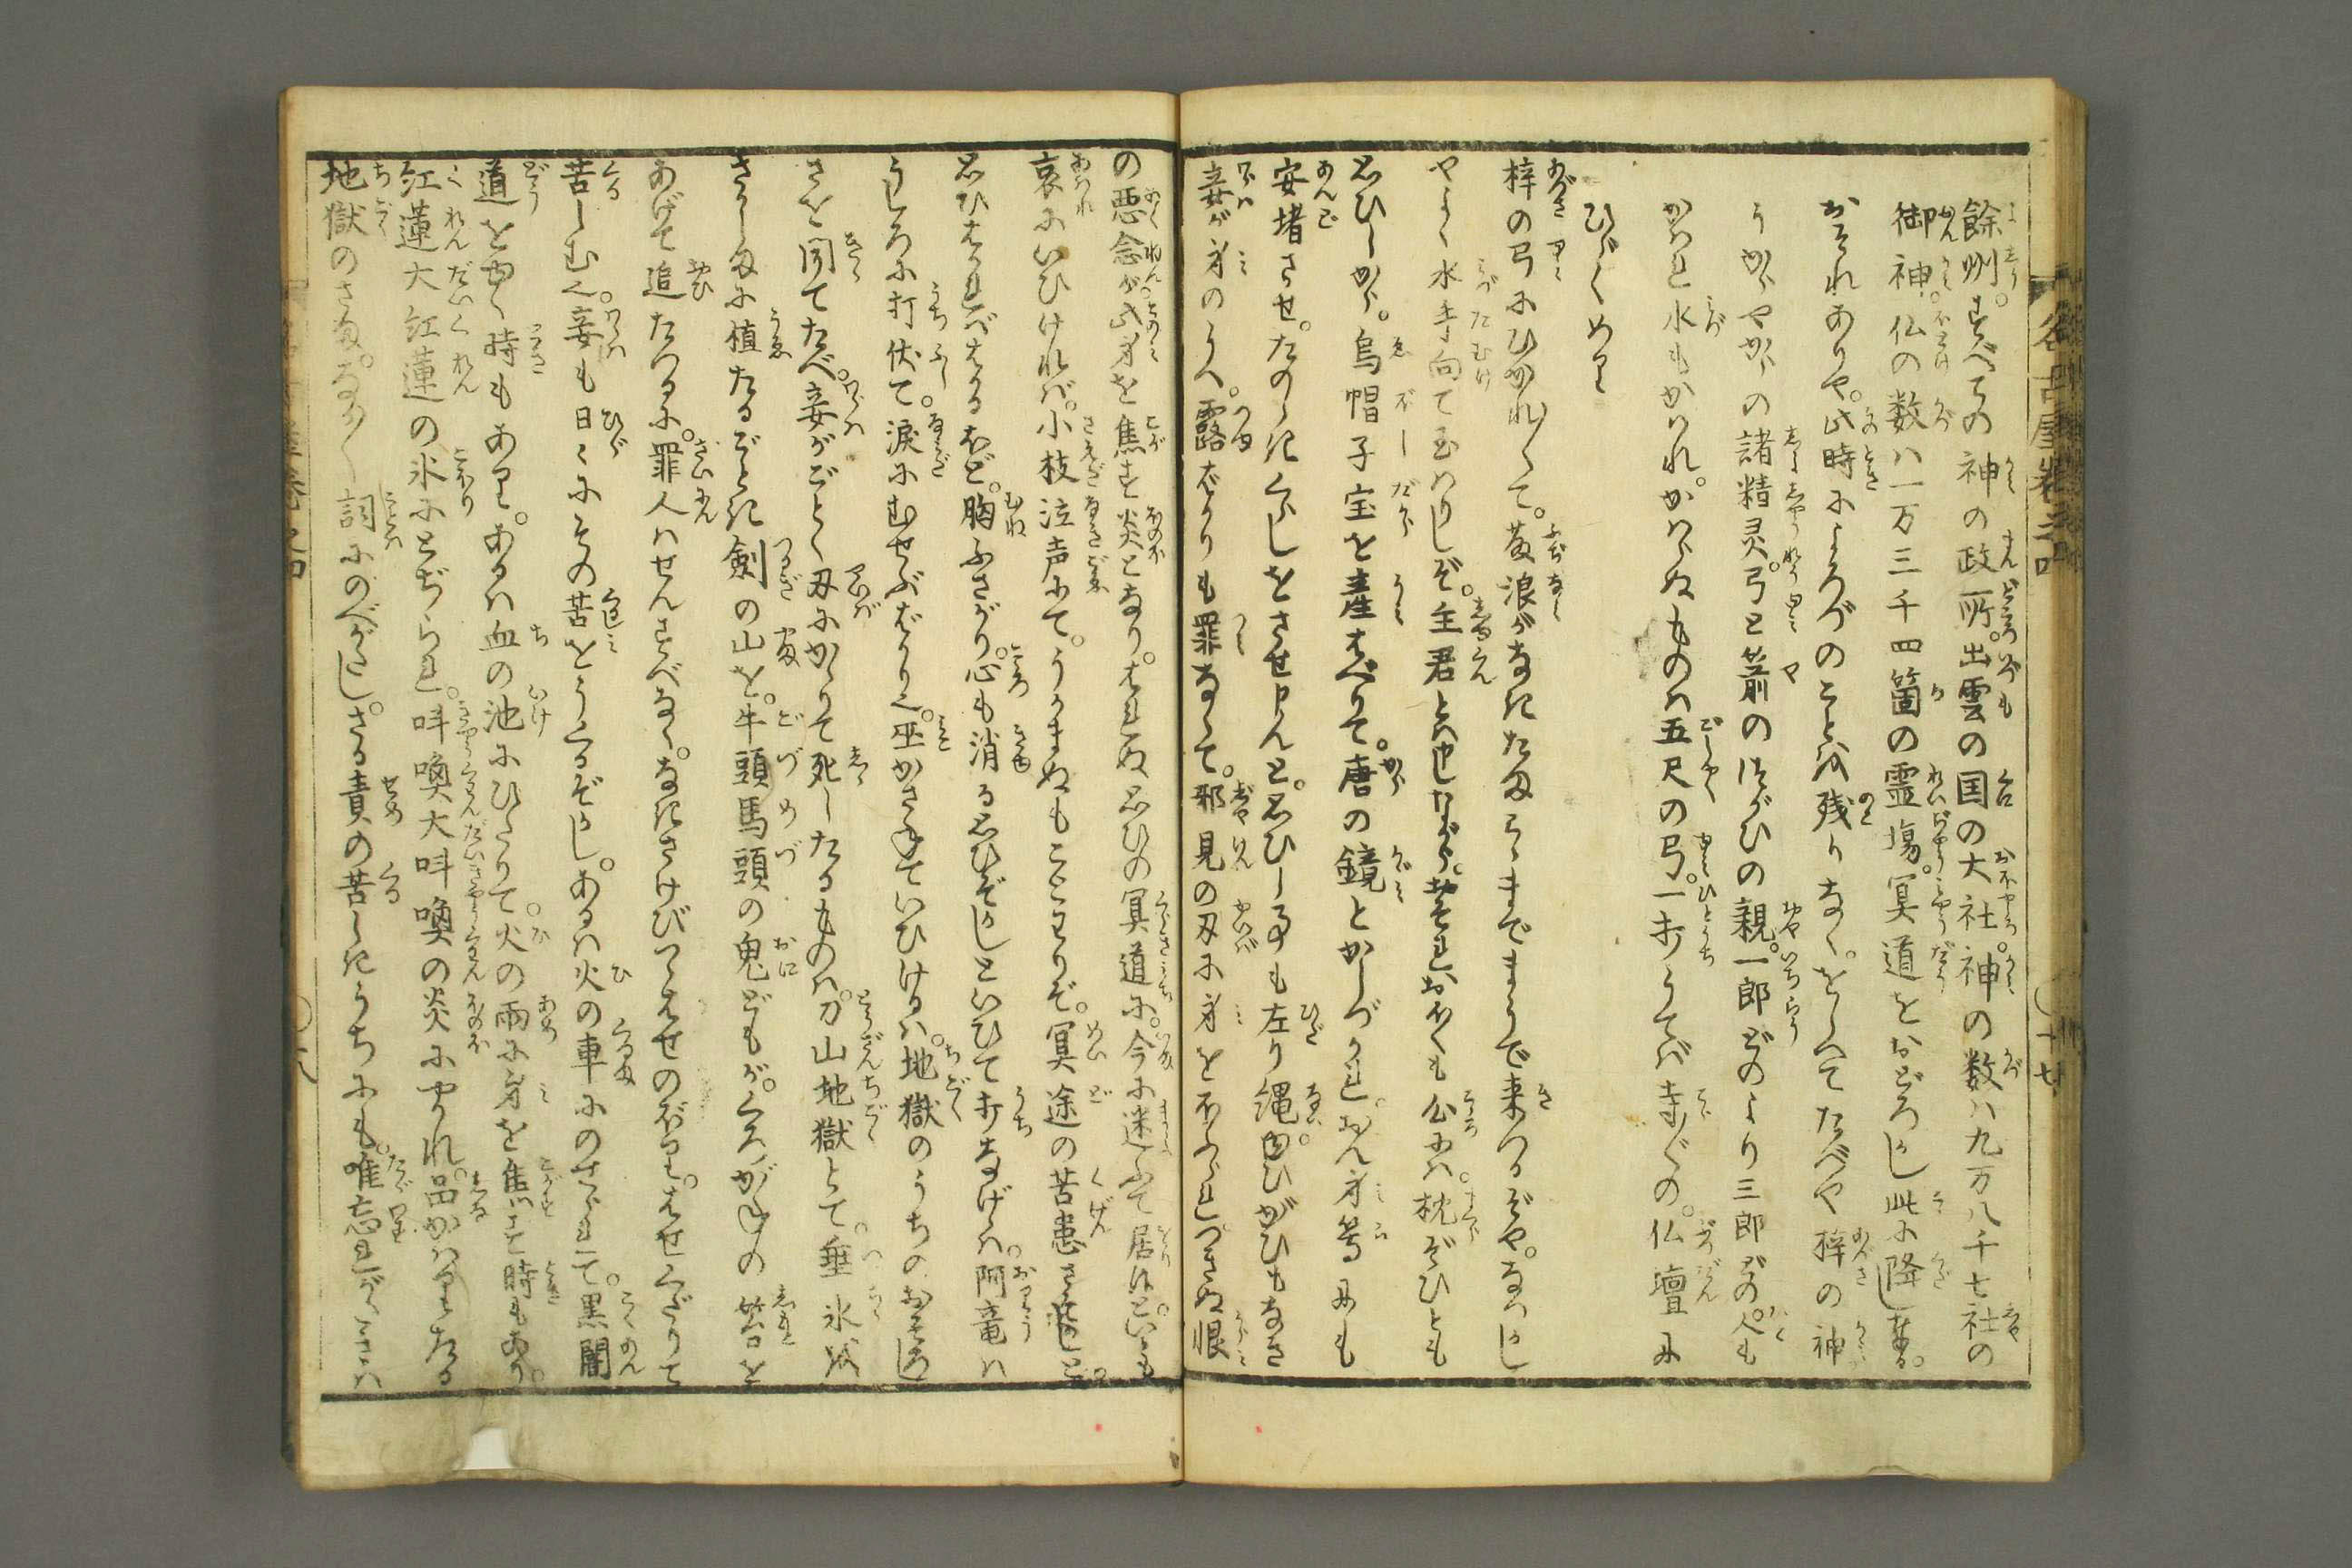 餘州。すべての神の政所。出雲の国の大社。神の数ハ九万八千七社の
御神。仏の数ハ一万三千四箇の霊場。冥道をおどろかし此に降し奉る。
おそれありや。此時によろづのことを残りなく。をしへてたべや梓の神
うからやからの諸精灵。弓と箭のつがひの親。一郎どのより三郎どの。人も
かはれ水もかはれ。かはらぬものハ五尺の弓。一打うてバ寺〳〵の。仏壇に
ひゞくめり
梓の弓にひかれ〳〵て。藤浪がなきたまこゝまでまうで来つるぞや。なつかし
やよく水手向て玉はりしぞ。主君とハ申しながら。おそれおほくも心にハ。枕ぞひとも
思ひしから。烏帽子宝を産はべりて。唐の鏡とかしづかれ。おん身等にも
安堵させ。たのしきくらしをさせ申んと。思ひし事も左り縄。ひがひもなき
妾が身のうへ。露ばかりも罪なくて。邪見の刃に身をほふられ。つきぬ恨
の悪念が此身を焦す炎となり。はれぬ思ひの冥道に。今に迷ふて居はべといとも
哀にいひけれバ。小枝泣声にて。うかまぬもことわりぞ。冥途の苦患さぞと
思ひはかればはかるほど。胸ふさがり。心も消る思ひぞかしといひて打なげくハ。阿竜ハ
うしろに打伏て。涙にむせぶばかり也。巫かさねていひけるハ。地獄のうちのおそろし
さを聞てたべ。妾がごとく刃にかゝりて死したるものハ。刀山地獄とて。垂氷を
さかしまに植たるごとき剣の山を。牛頭馬頭の鬼どもが。くろがねの笞を
あげて追たつるに。罪人ハせんすべなく。なきさけびつゝはせのぼり。はせくだりて
苦しむ也。妾も日ゝにその苦をうくるぞかし。あるハ火の車にのせられて。黒闇
道をゆく時もあり。あるハ血の池にひたりて。火の雨に身を焦す時もあり。
紅蓮大紅蓮の氷にとぢられ。叫喚大叫喚の炎にやかれ。品かはりたる
地獄のさま。なか〳〵詞にのべがたし。さる責の苦しきうちにも。唯忘れがたきハ
名古屋 巻之四
十七